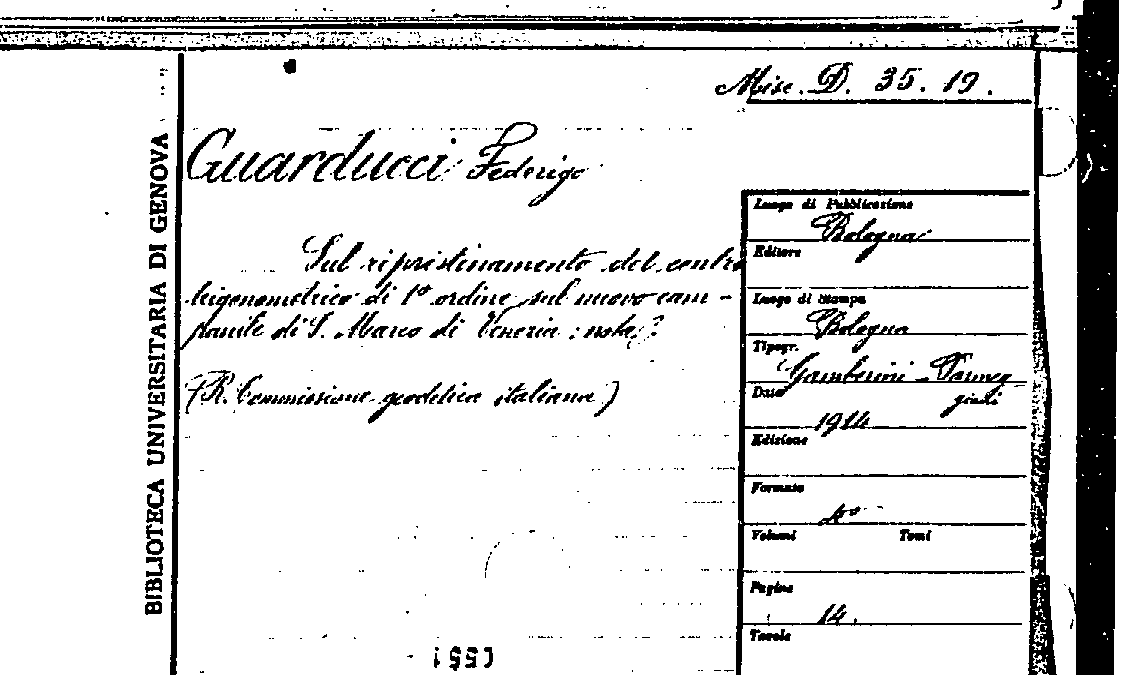 Misc. D. 35. 19.
BIBLIOTECA UNIVERSITARIA DI GENOVA
Guarducci Federigo
Sul ripristinamento del centro
trigonometrico di 1º ordine sul nuovo cam-
panile di S. Marco di Venezia: nota
(R. Commissione geodetica italiana)
Luogo di Pubblicazione
Bologna
Editore
Luogo di Stampa
Bologna
Tipogr.
Gamberini - Parmeg
giani
Data
1914
Edizione
Formato
4º
Volumi Tomi
Pagine
14.
Tavole